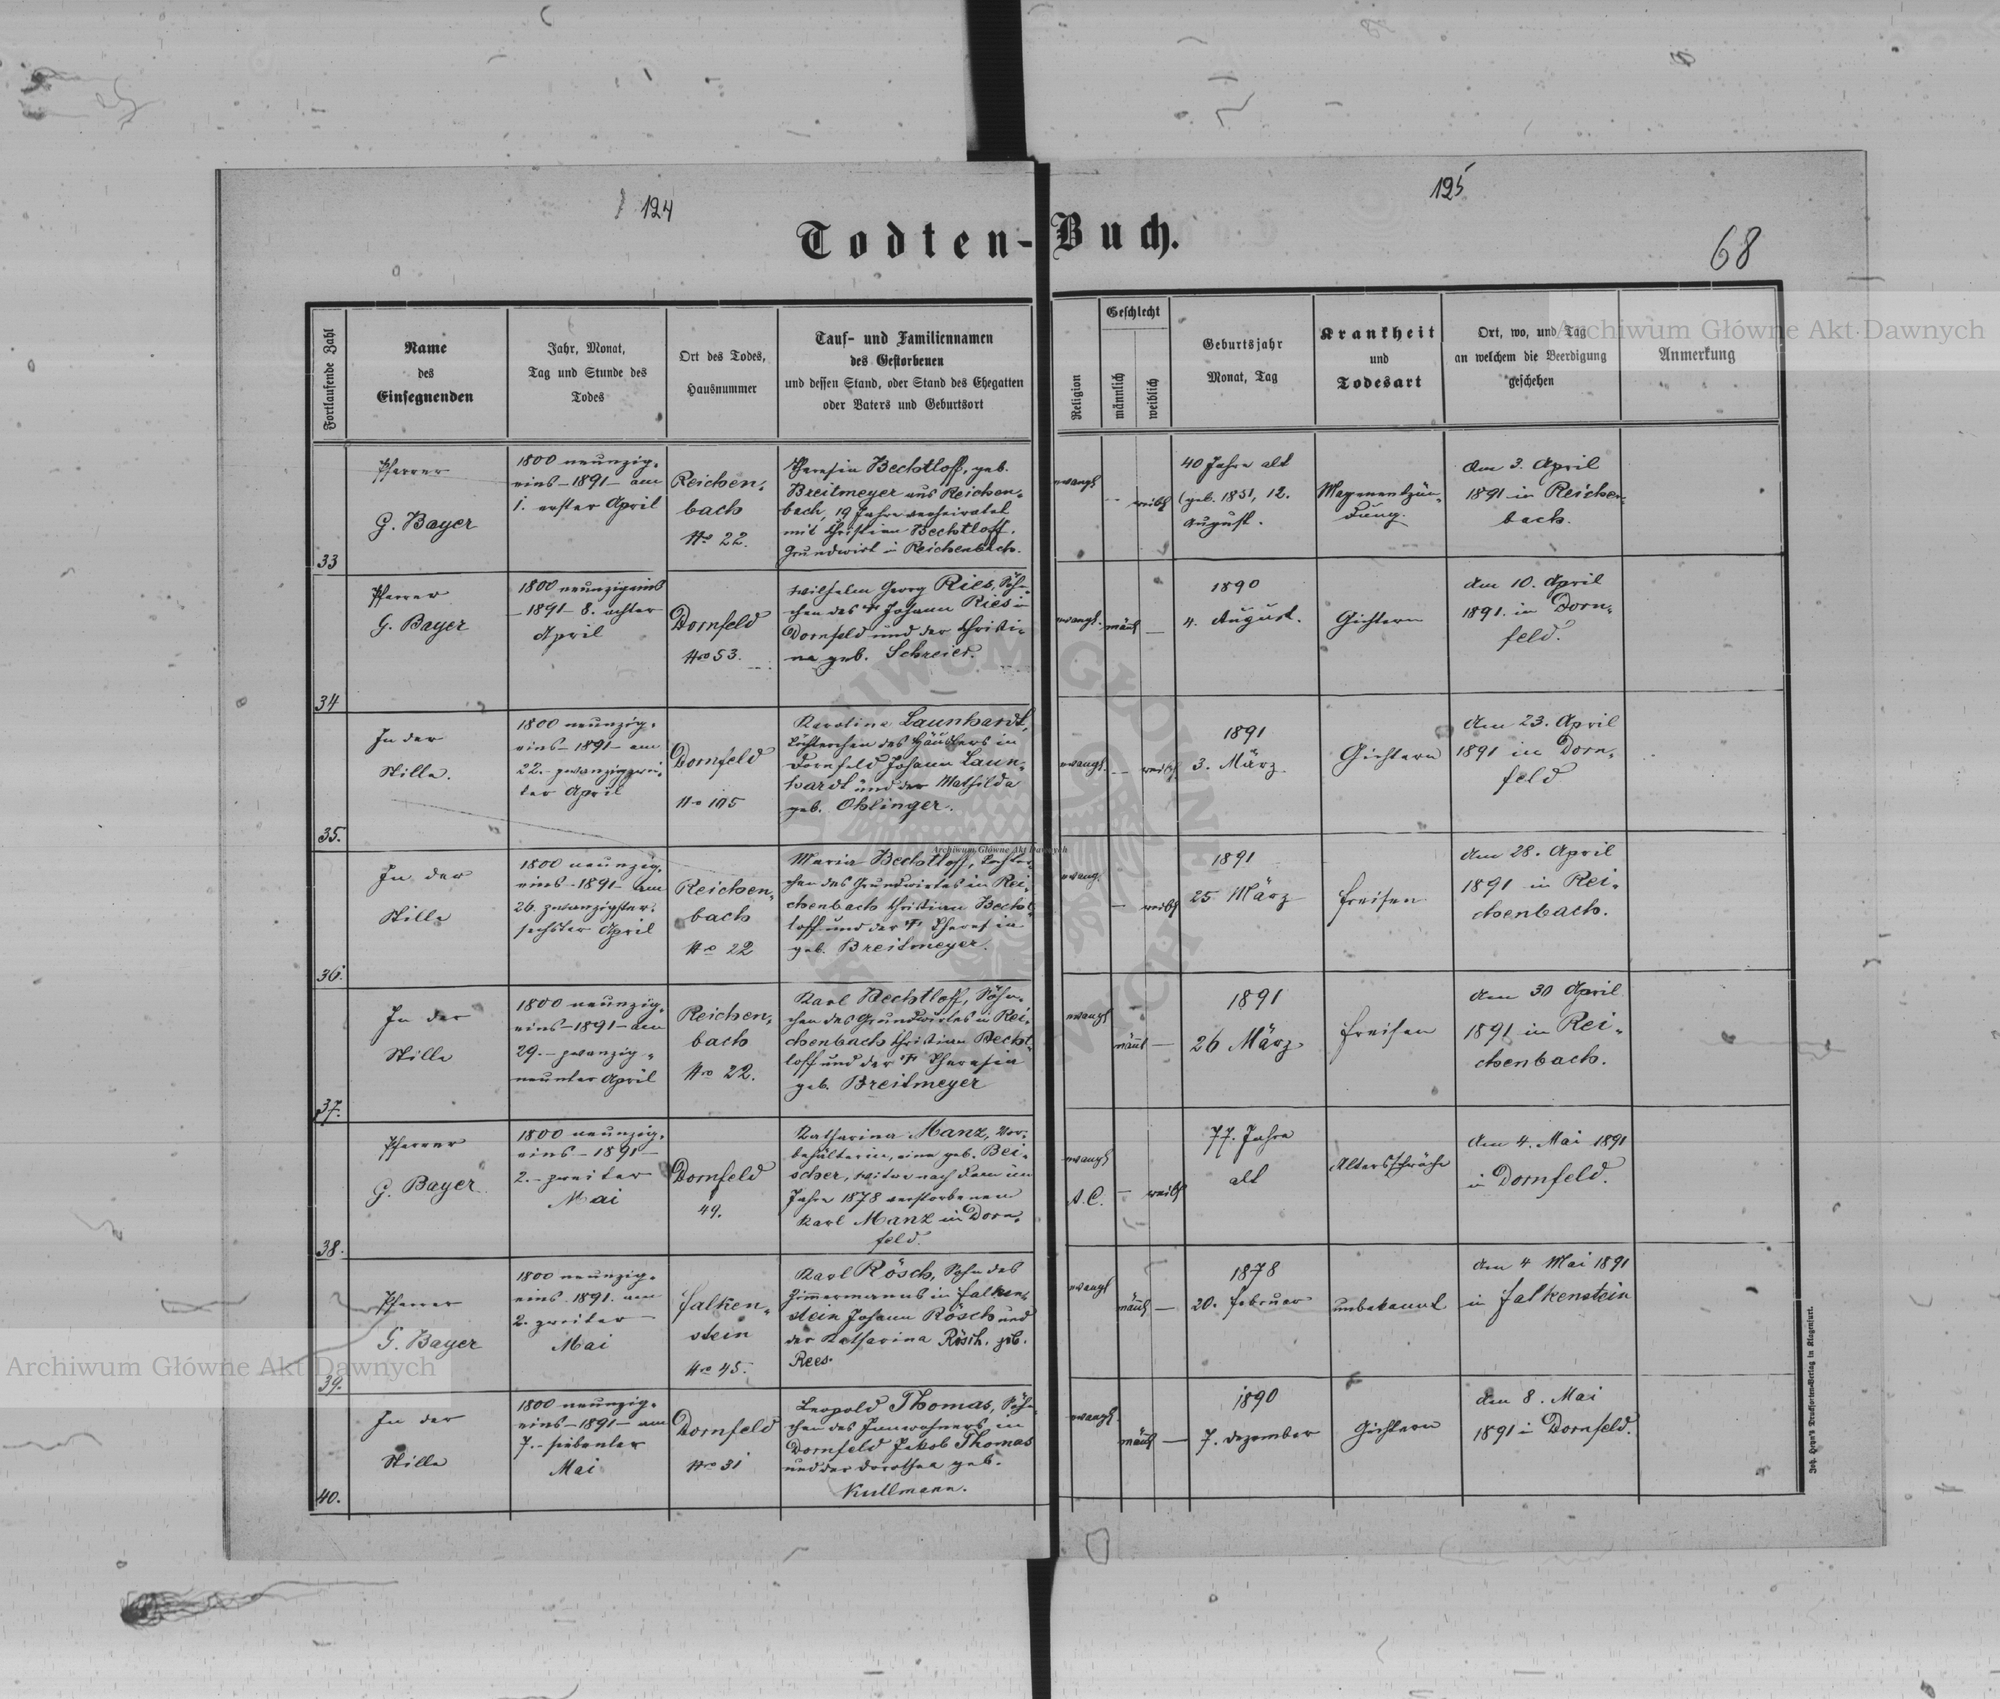 124
125
Todten-Buch.
68
Archiwum Główne Akt Dawnych
Fortlaufende Zahl
Name
des
Einsegnenden
Jahr, Monat,
Tag und Stunde des
Todes
Ort des Todes,
Hausnummer
Tauf- und Familiennamen
des Gestorbenen
und dessen Stand, oder Stand des Ehegatten
oder Vaters und Geburtsort
Religion
Geschlecht
männlich
weiblich
Geburtsjahr
Monat, Tag
Krankheit
und
Todesart
Ort, wo, und Tag
an welchem die Beerdigung
geschehen
Anmerkung
33
Pfarrer
G. Bayer
1800 neunzig-
eins – 1891 – am
1. erster April
Reichen-
bach
Nro 22.
Theresia Bechtloff, geb.
Breitmeyer aus Reichen-
bach, 19 Jahre verheiratet
mit Christian Bechtloff,
Grundwirt in Reichenbach.
evangl.
–
weibl
40 Jahre alt
(geb. 1851, 12.
August.
Magenentzün-
dung.
den 3. April
1891 in Reichen-
bach.
34
Pfarrer
G. Bayer
1800 neunzigeins
– 1891 – 8. achter
April
Dornfeld
Nro 53.
Wilhelm Georg Ries, Söhn-
chen des † Johann Ries in
Dornfeld und der Christi-
ne geb. Schreier.
evangl.
männl
–
1890
4. August.
Gichtern
den 10. April
1891 in Dorn-
feld.
35.
In der
Stille.
1800 neunzig-
eins – 1891 – am
22. – zwanzigzwei-
ter April
Dornfeld
Nro 105
Karoline Launhardt,
Töchterchen des Häuslers in
Dornfeld Johann Laun-
hardt und der Mathilda
geb. Ohlinger.
evangl.
–
weibl
1891
3. März
Gichtern
den 23. April
1891 in Dorn-
feld
36.
In der
Stille
1800 neunzig-
eins – 1891 – am
26. zwanzigster-
sechster April
Reichen-
bach
Nro 22
Maria Bechtloff, Töchter-
chen des Grundwirtes in Rei-
chenbach Christian Becht-
loff und der † Theresia
geb. Breitmeyer.
evang.
–
weibl
1891
25 März
Freisen
den 28. April
1891 in Rei-
chenbach.
Archiwum Główne Akt Dawnych
37.
In der
Stille
1800 neunzig-
eins – 1891 – am
29. – zwanzig-
neunter April
Reichen-
bach
Nro 22.
Karl Bechtloff, Söhn-
chen des Grundwirtes in Rei-
chenbach Christian Becht-
loff und der † Theresia
geb. Breitmeyer
evangl
männl
–
1891
26 März
Freisen
den 30 April
1891 in Rei-
chenbach.
38.
Pfarrer
G. Bayer
1800 neunzig-
eins – 1891 –
2. – zweiter
Mai
Dornfeld
49.
Katharina Manz, Vor-
behälterin, eine geb. Bei-
scher, Witwe nach dem im
Jahre 1878 verstorbenen
Karl Manz in Dorn-
feld.
evangl
A. C.
–
weibl
77. Jahre
alt
Altersschwäche
den 4. Mai 1891
in Dornfeld.
39.
Pfarrer
G. Bayer
1800 neunzig-
eins – 1891. am
2. zweiter –
Mai
Falken-
stein
Nro 45.
Karl Rösch, Sohn des
Zimmermanns in Falken-
stein Johann Rösch und
der Katharina Rösch, geb.
Rees.
evangl
männl
–
1878
20. Februar
unbekannt
den 4 Mai 1891
in Falkenstein
Archiwum Główne Akt Dawnych
40.
In der
Stille
1800 neunzig-
eins – 1891 – am
7. – siebenter
Mai
Dornfeld
Nro 31
Leopold Thomas, Söhn-
chen des Innwohners in
Dornfeld Jakob Thomas
und der Dorothea geb.
Kullmann.
evangl.
männl
–
1890
7. Dezember
Gichtern
den 8. Mai
1891 in Dornfeld.
Joh. Heyn's Drucksorten-Verlag in Klagenfurt.